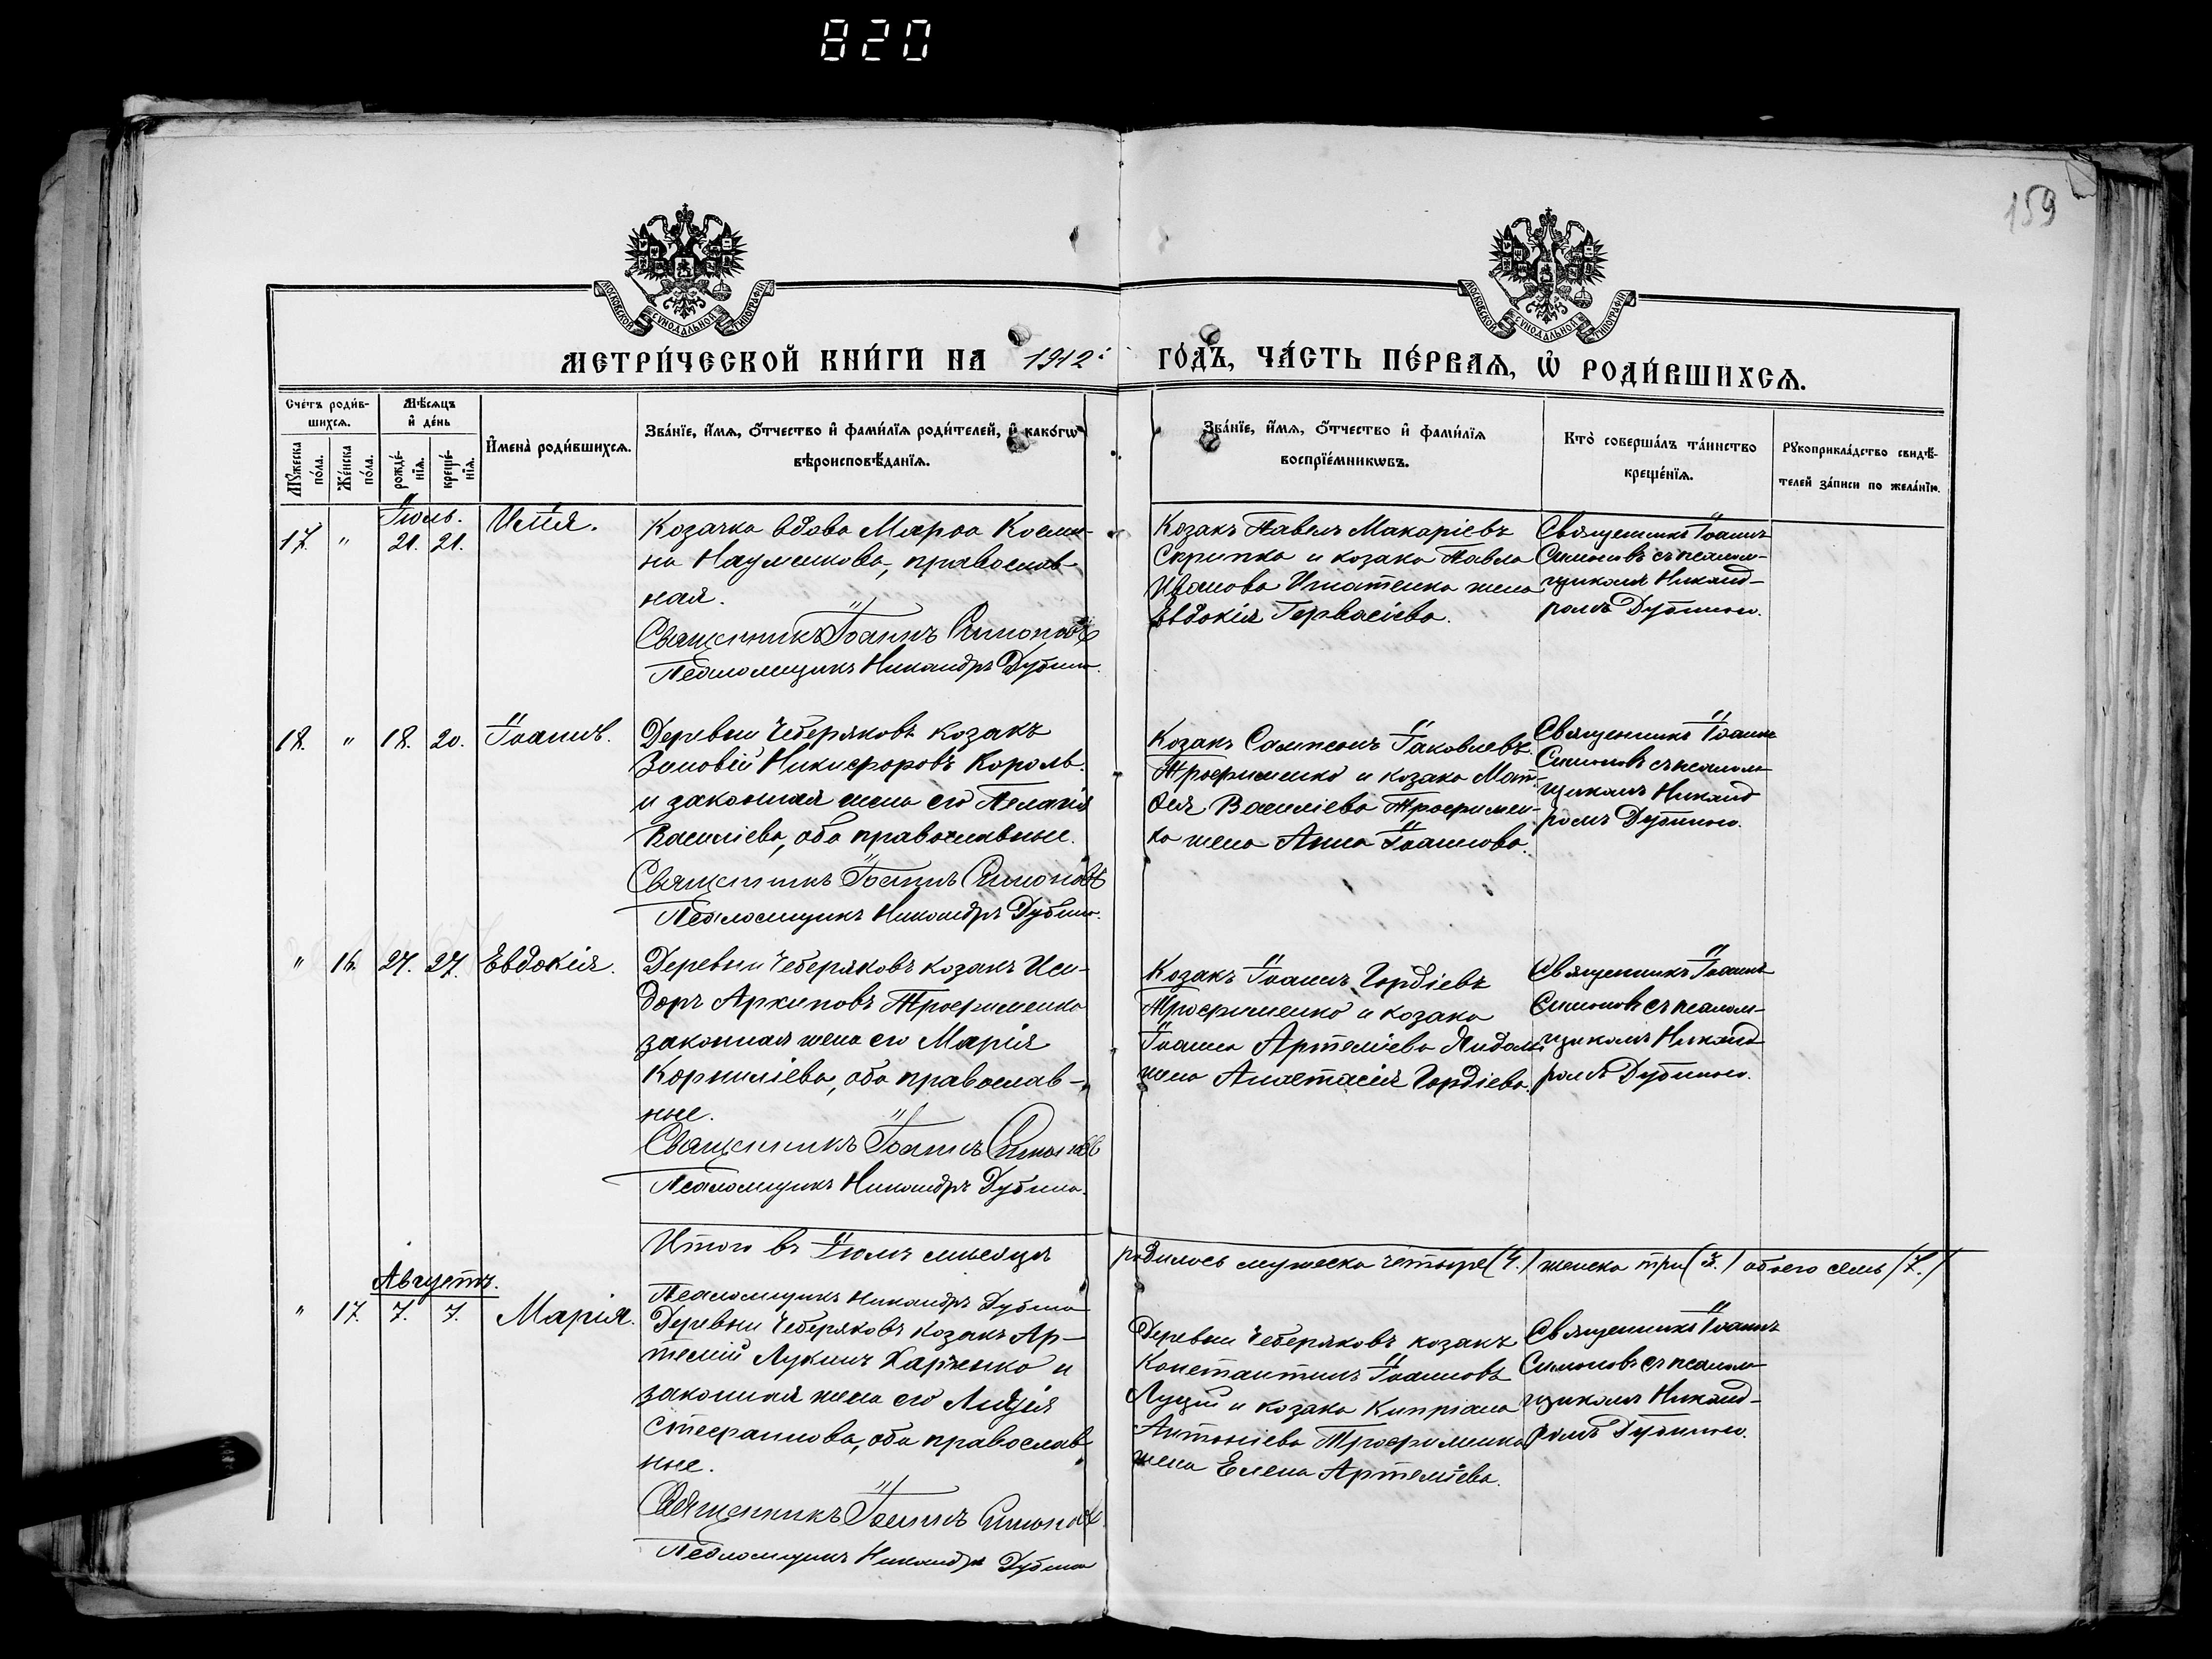 820
159
МОСКОВСКОЙ СУНОДАЛЬНОЙ ТИПОГРАФІИ
МОСКОВСКОЙ СУНОДАЛЬНОЙ ТИПОГРАФІИ
МЕТРИ́ЧЕСКОЙ КНИ́ГИ НА 1912 ГО́ДЪ, ЧА́СТЬ ПЕ́РВАѦ, Ѡ҆ РОДИ́ВШИХСѦ.
Сче́тъ роди́в-
шихсѧ.
Мꙋ́жеска по́ла.
Же́нска по́ла.
Мѣ́сѧцъ
и҆ де́нь
рожде́-
нїѧ.
креще́-
нїѧ.
И҆мена̀ роди́вшихсѧ.
Зва́нїе, и҆́мѧ, ѻ҆́тчество и҆ фами́лїѧ роди́телей, и҆ како́гѡ
вѣроисповѣ́данїѧ.
Зва́нїе, и҆́мѧ, ѻ҆́тчество и҆ фами́лїѧ
воспрїе́мникѡвъ.
Кто̀ соверша́лъ та́инство
креще́нїѧ.
Рꙋкоприкла́дство свидѣ́-
телей за́писи по жела́нїю.
Іюль.
17. " 21. 21. Илія.
Козачка вдова Марѳа Косми-
на Науменкова, православ-
ная.
Священникъ Іоаннъ Симоновъ
Псаломщикъ Никандръ Дубина.
Козакъ Павелъ Макаріевъ
Скрипка и козака Павла
Иванова Игнатенка жена
Евдокія Гервасіева.
Священникъ Іоаннъ
Симоновъ съ псалом-
щикомъ Никанд-
ромъ Дубиною.
18. " 18. 20. Іоаннъ.
Деревни Чеберяковъ козакъ
Зиновій Никифоровъ Король
и законная жена его Пелагія
Василіева, оба православные.
Священникъ Іоаннъ Симоновъ
Псаломщикъ Никандръ Дубина.
Козакъ Сампсонъ Іаковлевъ
Трофименко и козака Мат-
ѳея Василіева Трофимен-
ка жена Анна Іоаннова.
Священникъ Іоаннъ
Симоновъ съ псалом-
щикомъ Никанд
ромъ Дубиною.
" 16. 27. 27. Евдокія.
Деревни Чеберяковъ козакъ Иси-
доръ Архиповъ Трофименко
законная жена его Марія
Корниліева, оба православ-
ные.
Священникъ Іоаннъ Симоновъ
Псаломщикъ Никандръ Дубина.
Козакъ Іоаннъ Гордіевъ
Трофименко и козака
Іоанна Артеміева
жена Анастасія Гордіева.
Священникъ Іоаннъ
Симоновъ съ псалом-
щикомъ Никанд
ромъ Дубиною.
Итого въ Іюлѣ мѣсяцѣ родилось мужеска четыре (4.) женска три (3.) обоего семь (7.)
Псаломщикъ Никандръ Дубина
Августъ.
" 17. 7. 7. Марія.
Деревни Чеберяковъ козакъ Ар-
темій Лукинъ Харченко и
законная жена его Лидія
Стефанова, оба православ
ные.
Священникъ Іоаннъ Симоновъ
Псаломщикъ Никандръ Дубина
Деревни Чеберяковъ козакъ
Константинъ Іоанновъ
Луцій и козака Кипріана
Антоніева Трофименка
жена Елена Артеміева.
Священникъ Іоаннъ
Симоновъ съ псалом
щикомъ Никанд-
ромъ Дубиною.